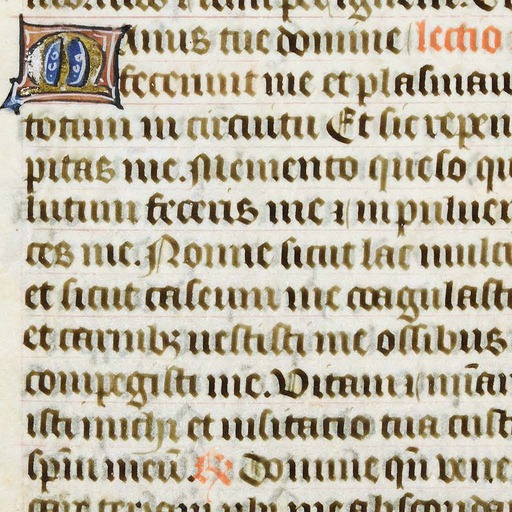 Manus tue domine lectio
fecerunt me et plasmau
totum in circuitu Et sic repen
pitas me. Memento queso qu
lutum feceris me ⁊ in puluer
ces me. Nonne sicut lac mulc
et sicut caseum me coagulasti
et carnibꝫ uestisti me ossibus
compegisti me. Vitam ⁊ mīar
isti michi et uisitatio tua cust
spm̄ meū. R Domine qn̄ vene
terram ubi me abscondā